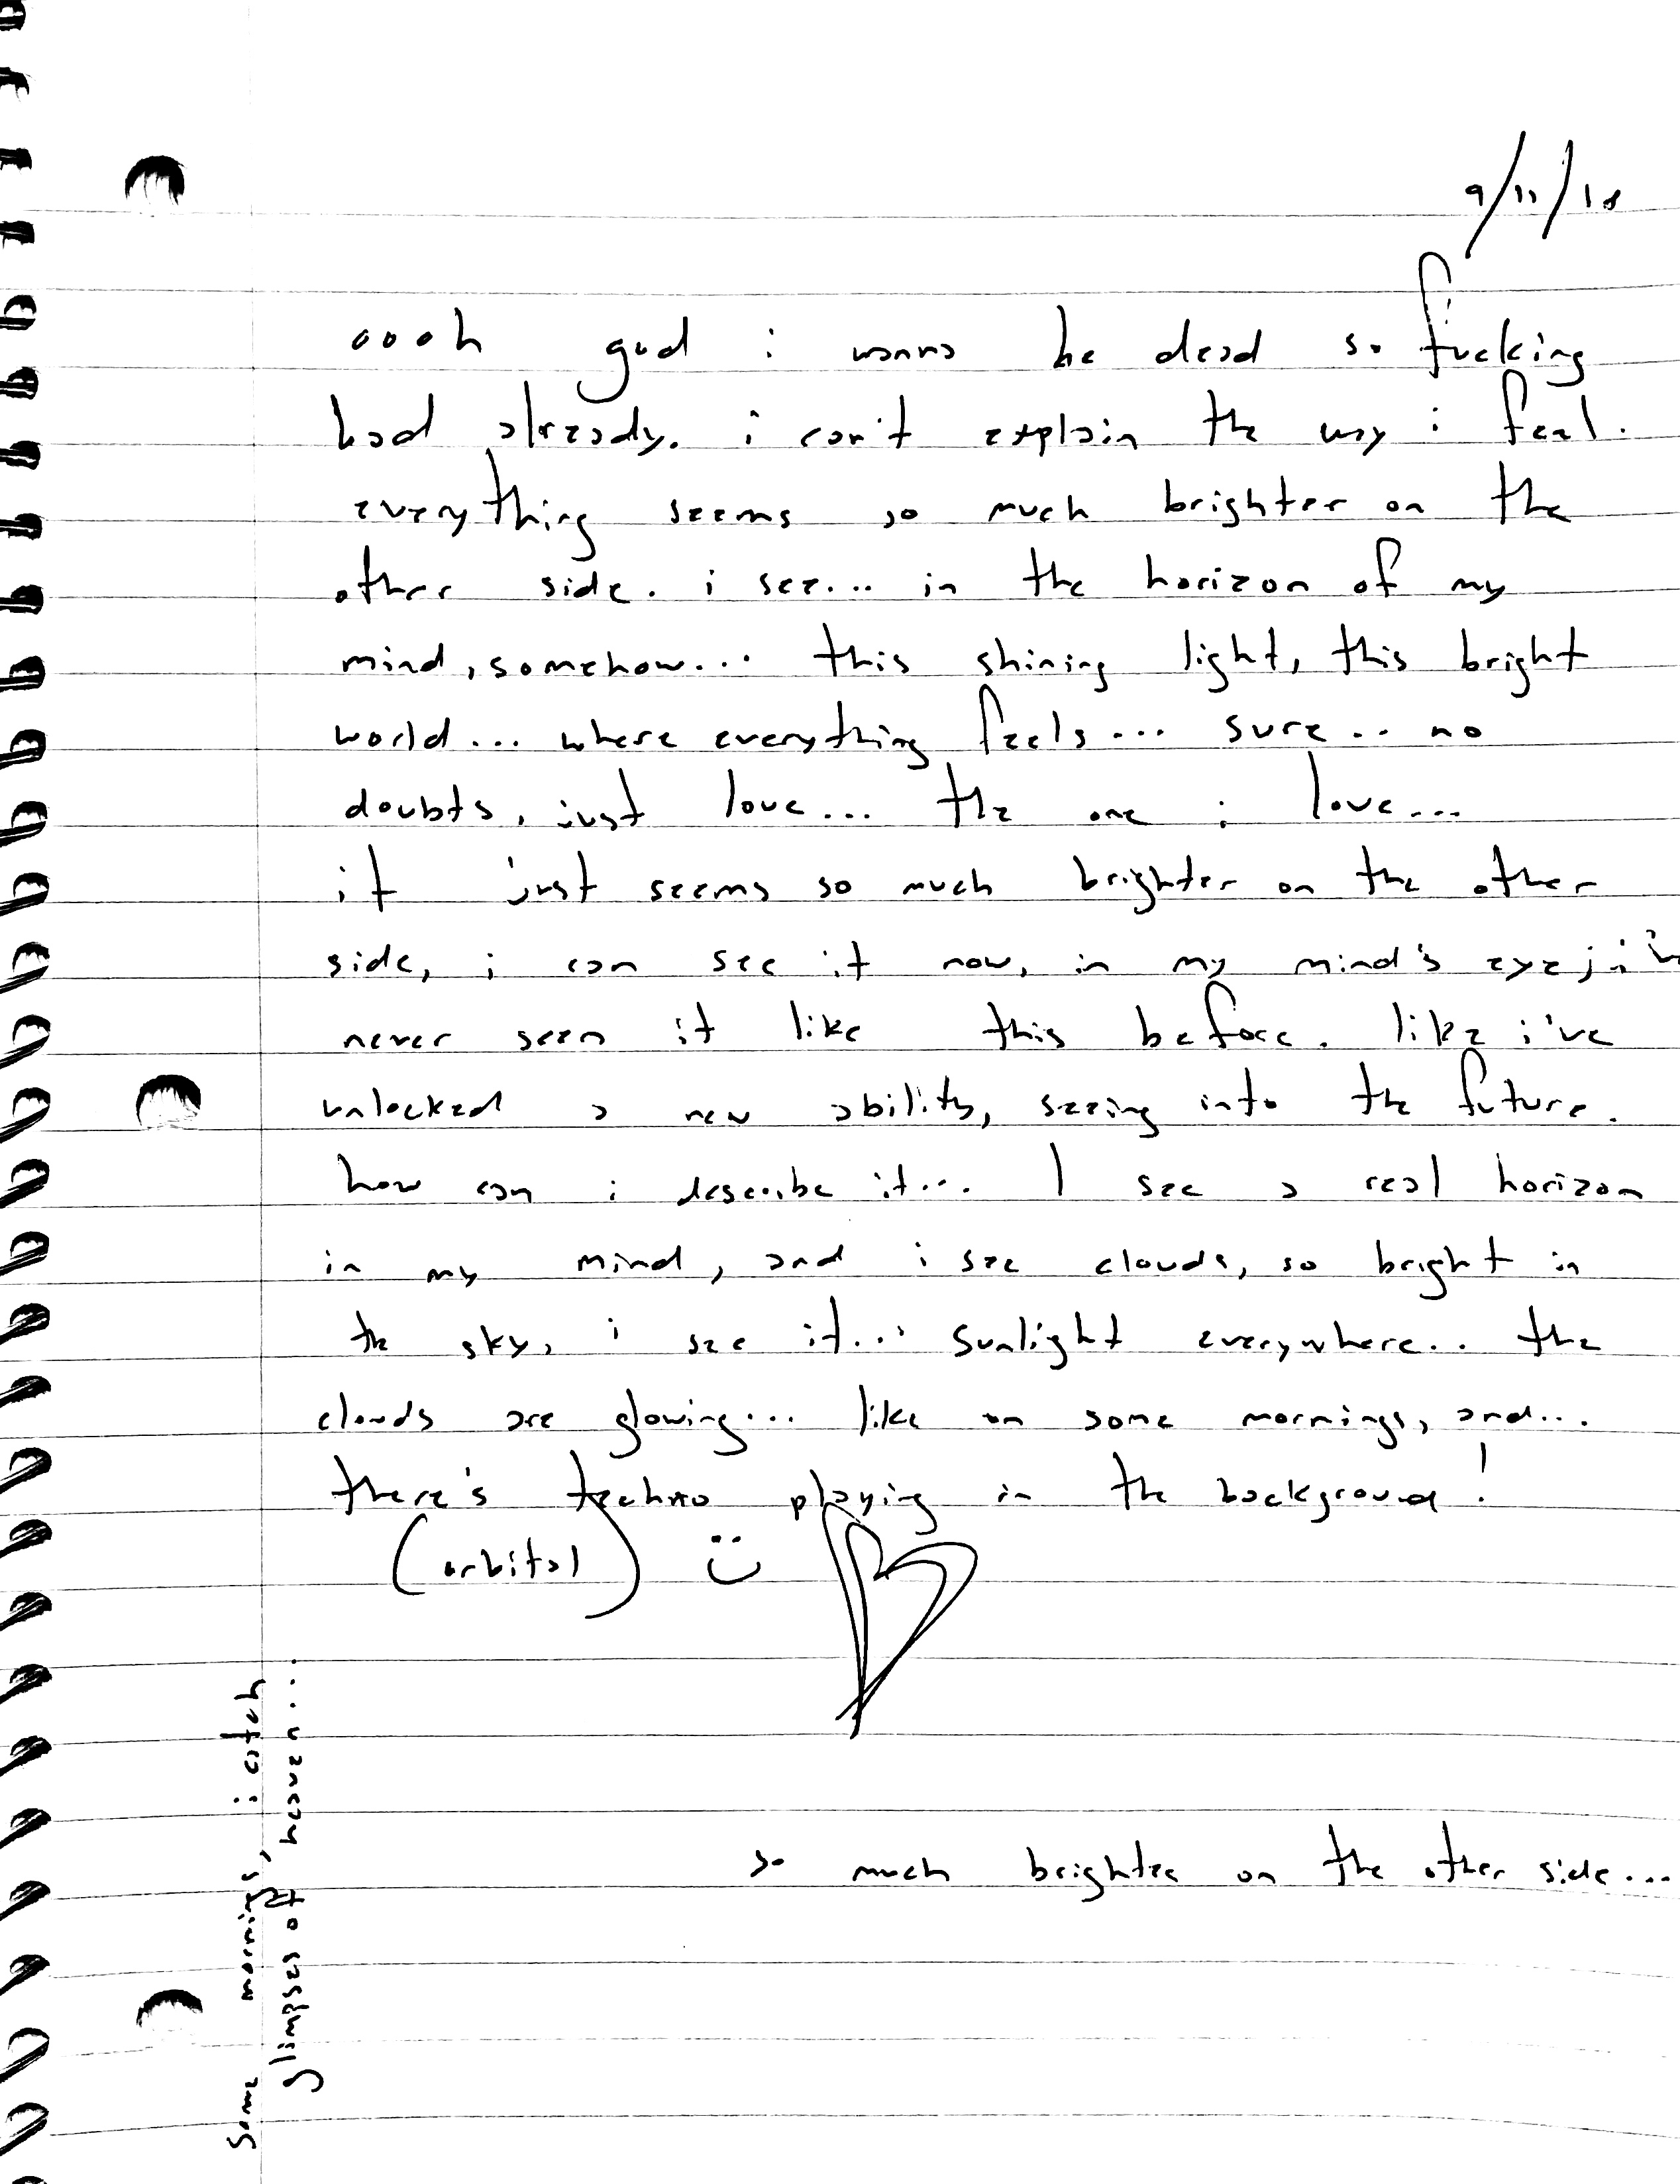 9/11/18
oooh god i wanna be dead so fucking
bad already. i can't explain the way i feel.
everything seems so much brighter on the
other side. i see... in the horizon of my
mind, somehow... this shining light, this bright
world... where everything feels... sure.. no
doubts, just love... the one i love...
it just seems so much brighter on the other
side, i can see it now, in my mind's eye; i'v
never seen it like this before. like i've
unlocked a new ability, seeing into the future.
how can i describe it... I see a real horizon
in my mind, and i see clouds, so bright in
the sky, i see it... sunlight everywhere.. the
clouds are glowing... like on some mornings, and...
there's techno playing in the background!
(orbital) :)
some mornings, i catch
glimpses of heaven...
so much brighter on the other side...